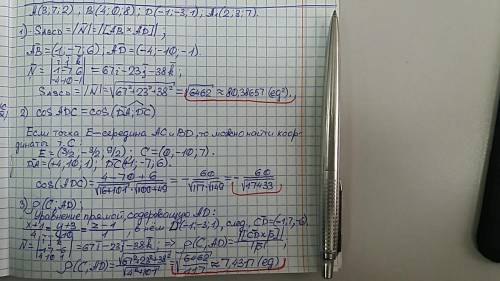 A(3;7;2); B(4;0;8); D(-1;-3;1); A₁(2;3;7).
1) S_ABCD = |N̄| = |[AB × AD]|;
AB = (1;-7;6); AD = (-4;-10;-1)
N̄ = |i j k; 1 -7 6; -4 -10 -1| = 67ī - 23j̄ - 38k̄;
S_ABCD = |N̄| = √(67² + 23² + 38²) = √6462 ≈ 80,38657 (ед²).
2) cos ADC = cos(DA; DC)
Если точка E - середина AC и BD, то можно найти коор-
динаты т. C:
E = (3/2; -3/2; 9/2); C = (0; -10; 7).
DA = (+4; 10; 1); DC(1; -7; 6).
cos(ADC) = (4 - 70 + 6)/(√(16+101) · √(100+49)) = -60/(√117 · √149) = -60/√17433
3) ρ(C, AD);
Уравнение прямой, содержащую AD:
(x+1)/4 = (y+3)/10 = (z-1)/1, в нем D(-1; -3; 1), след. CD = (-1; 7; -6).
N = 67ī - 23j̄ - 38k̄; ⇒ ρ(C, AD) = |[CD × p̄]|/|p̄|
ρ(C, AD) = √(67² + 23² + 38²)/√(4² + 10² + 1) = √(6462/117) ≈ 7,4317 (ед)